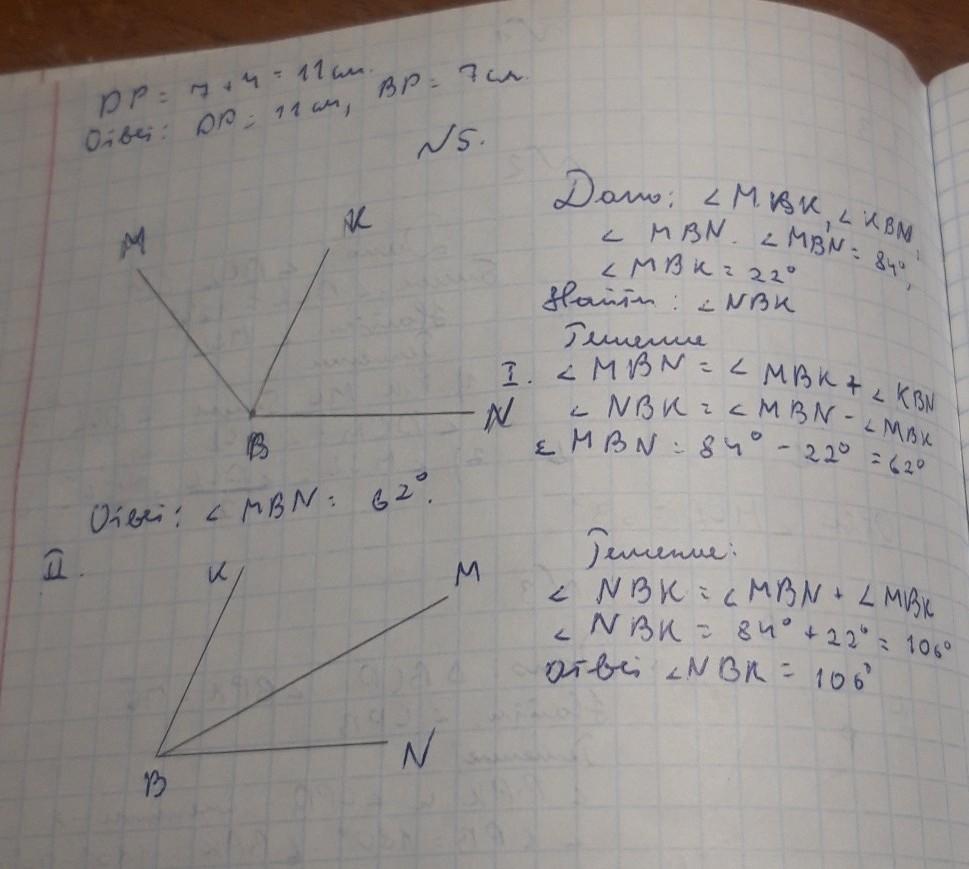 DP = 7 + 4 = 11 см.
Ответ: DP = 11 см, BP = 7 см.
N5.
M
K
B
N
Дано: ∠MBK, ∠KBN,
∠ MBN. ∠MBN = 84°,
∠ MBK = 22°
Найти: ∠NBK
Решение
I. ∠ MBN = ∠ MBK + ∠ KBN
∠ NBK = ∠ MBN - ∠MBK
∠ MBN = 84° - 22° = 62°
Ответ: ∠ MBN = 62°.
II.
K
M
B
N
Решение:
∠ NBK = ∠MBN + ∠MBK
∠ NBK = 84° + 22° = 106°
Ответ ∠NBK = 106°